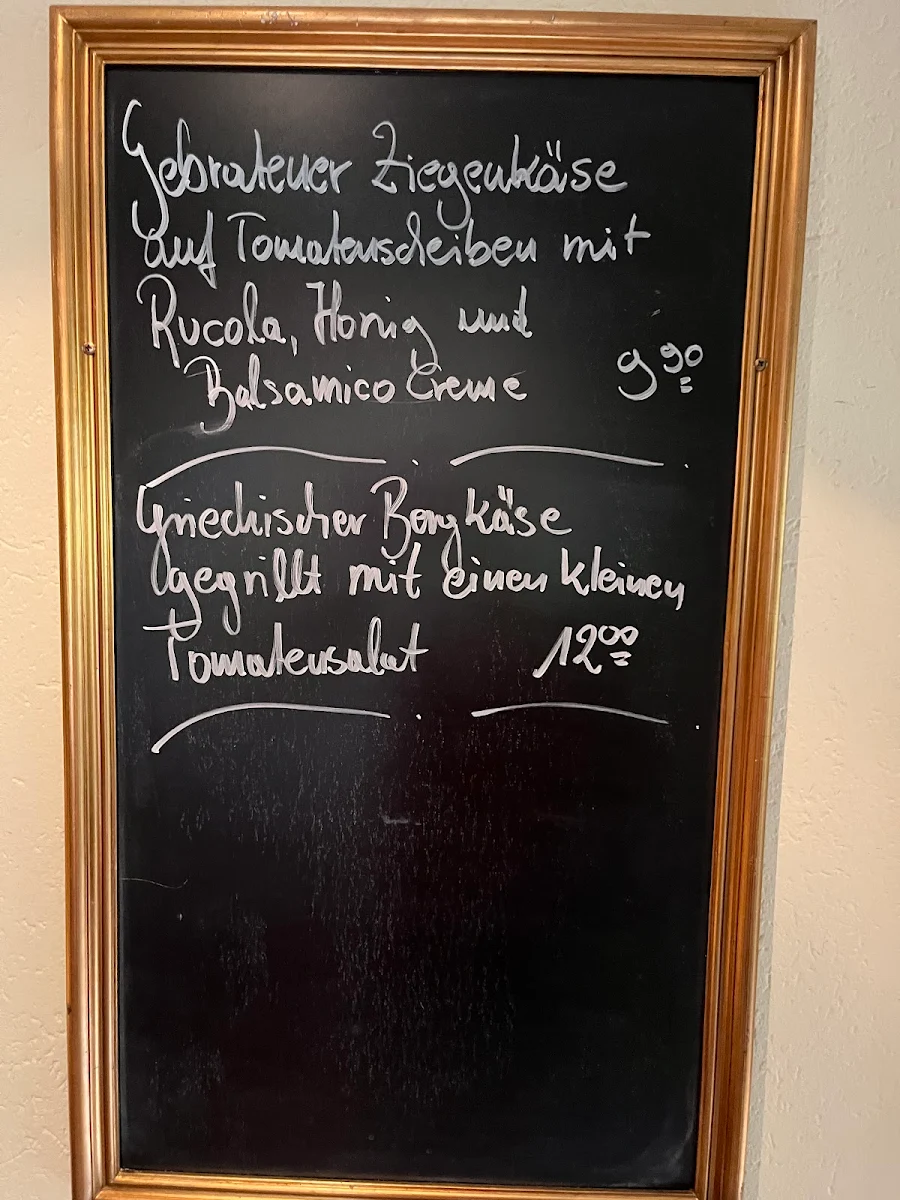 Gebratener Ziegenkäse
auf Tomatenscheiben mit
Rucola, Honig und
Balsamico Creme 9 90
Griechischer Bergkäse
gegrillt mit einen kleinen
Tomatensalat 12 00